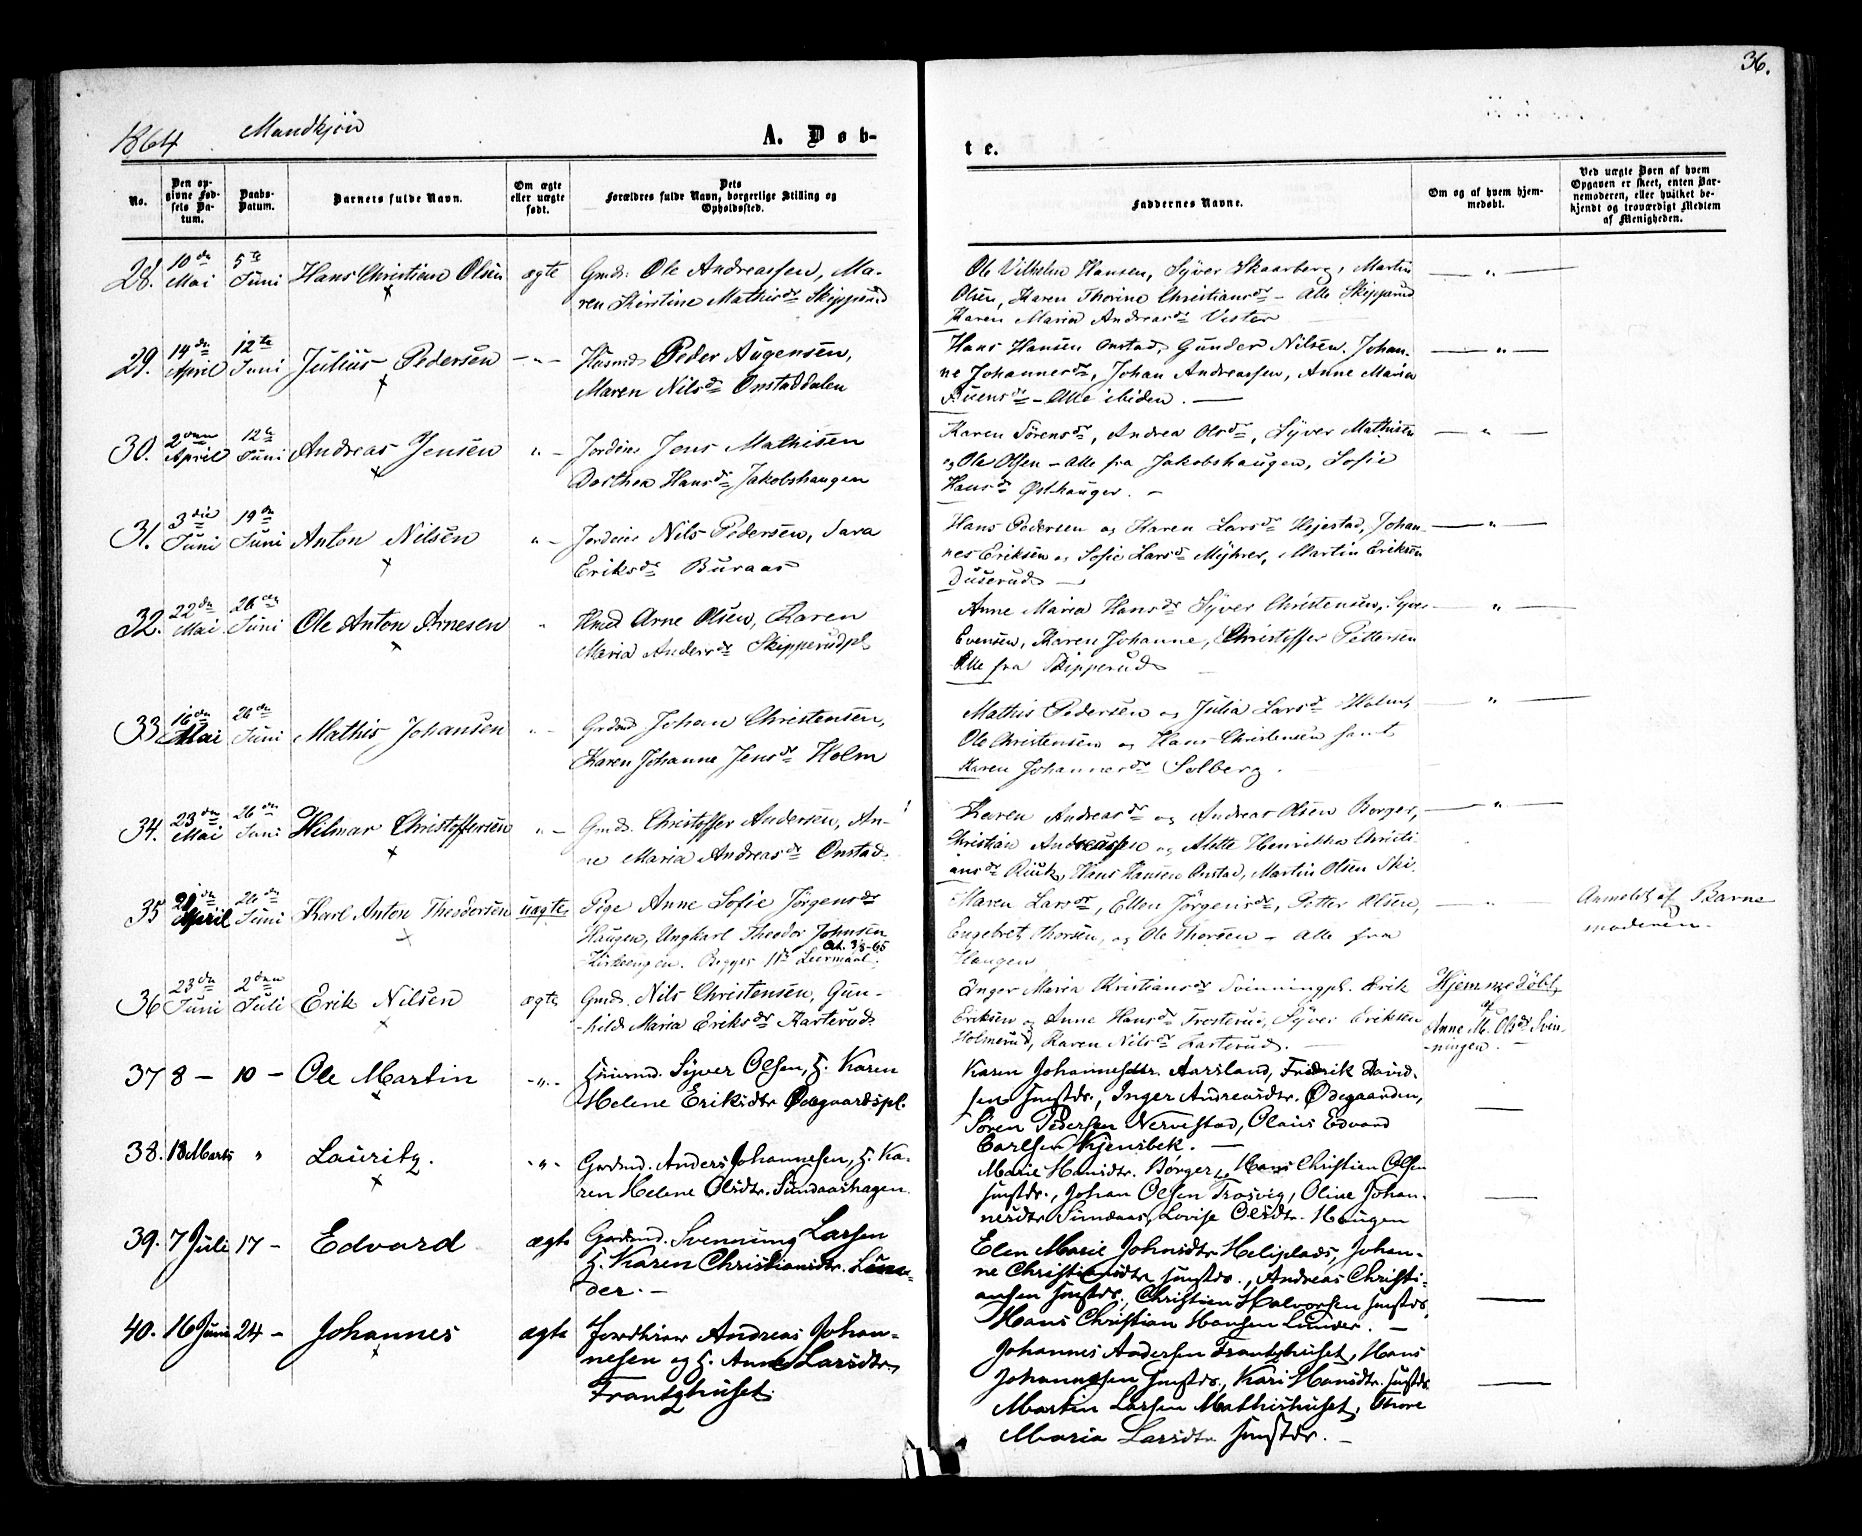 36.
1864 Mandkjön
A. Døb-
te.
No.
Den op-
givne Fød-
sels Da-
tum.
Daabs-
Datum.
Barnets fulde Navn.
Om ægte
eller uægte
født.
Dets
Forældres fulde Navn, borgerlige Stilling og
Opholdssted.
Faddernes Navne.
Om og af hvem hjem-
medøbt.
Ved uægte Børn af hvem
Opgaven er skeet, enten Bar-
nemoderen, eller hvilket be-
kjendt og troværdigt Medlem
af Menigheden.
28. 10de Mai 5te Juni Hans Christian Olsen ægte Gmd: Ole Andreassen, Ma-
ren Kirstine Mathisdr Skipperud
Ole Vilhelm Hansen, Syver Skaarberg, Martin
Olsen, Karen Thorine Christiansdr - Alle Skipperud
Karen Maria Andreasdr Vister
29. 14de April 12te Juni Julius Pedersen - " - Husmd Peder Augensen,
Maren Nilsdr Onstaddalen
Hans Hansen Onstad, Gunder Nilsen, Johan-
ne Johannesdr, Johan Andreassen, Anne Maria
- Alle ibiden. -
30. 2den April 12te Juni Andreas Jensen " - Jens Mathisen
Dorthea Hansdr Jakobshaugen
Karen Sörensdr, Andrea Olsdr, Syver Mathisen
og Ole Olsen - Alle fra Jakobshaugen, Sofie
Hansdr Østhauger. -
31. 3die Juni 19de Juni Anton Nilsen " - Nils Pedersen, Sara
Eriksdr Buraas
Hans Pedersen og Karen Larsdr Hejestad, Johan-
nes Eriksen og Sofie Larsdr Myhrer, Martin Eriksen
Duserud -
32. 22de Mai 26de Juni Ole Anton Arnesen " Hmd Arne Olsen, Karen
Maria Andersdr Skipperudpl.
Anne Maria Hansdr Syver Christensen, Syver
Evensen, Karen Johanne, Christoffer Pettersen
Alle fra Skipperud
33. 16de Mai 26de Juni Mathis Johansen " - Grdmd Johan Christensen,
Karen Johanne Jensdr Holm
Mathis Pedersen og Julia Larsdr Holm,
Ole Christensen og Hans Christensen samt
Karen Johannesdr Solberg.
34. 23de Mai 26de Juni Hilmar Christoffersen " - Gmd. Christoffer Andersen, An-
ne Maria Andreasdr Onstad.
Karen Andreasdr og Andreas Olsen Borger,
Christian Andreassen og Alette Henrikka Christi-
ansdr Hans Hansen Onstad, Martin Olsen Ski.
35 April 26de Juni Karl Anton Theodorsen uægte Pige Anne Sofie Jörgensdr
Haugen, Ungkarl Theodor Johnsen
Kirkeengen. Begges 1ste Leiermaal.
Maren Larsdr, Ellen Jörgensdr, Petter Olsen,
Engebret Thorsen, og Ole Thorsen - Alle fra
Haugen
Anmeldt af Barne
moderen.
36 23de Juni 2den Juli Erik Nilsen ægte Gmd. Nils Christensen, Gun-
hild Maria Eriksdr Karterud.
Inger Maria Kristiansdr Svinningpl. Erik
Eriksen og Anne Hansdr Frosterud, Syver Eriksen
Holmerud, Karen Nilsdr Karterud. -
Hjemmedöbt,
af
Anne M. Olsdr Svin
-ningen. -
37 8 - 10 - Ole Martin - " - Huusmd. Syver Olsen, H. Karen
Helene Eriksdtr Ødegaardspl.
Karen Johannesdtr. Aarsland, Fredrik David-
sen smstds., Inger Andreasdtr. Ødegaarden,
Sören Pedersen Nervestad, Olaus Edvard
Carlsen Kjensbek. -
38. 18 Marts " Lauritz. - " - Gaardmd. Anders Johannesen, H. Ka-
ren Helene Olsdtr. Sundaashagen.
Marie Hansdtr. Børger, Hans Christian Olsen
smstds., Johan Olsen Trosvig, Oline Johan-
nesdtr Sundaas, Lovise Olsdtr. Haugen
39. 7 Juli 17 - Edvard ægte Gaardmd. Svenning Larsen
H. Karen Christiansdtr. Lun-
der. -
Elen Marie Johnsdtr Helgeplads, Johan-
ne Christiansdtr smstds., Andreas Christi-
ansen smstds., Christian Halvorsen smstds,
Hans Christian Hansen Lunder. -
40. 16 Juni 24 - Johannes ægte Jordbrier Andreas Johan-
nesen og H. Anne Larsdtr
Frantzhuset.
Johannes Andersen Frantzhuset, Hans
Johannesen smstds., Kari Hansdtr. smstds.
Martin Larsen Mathishuset, Thore
Maria Larsdtr smstds. -